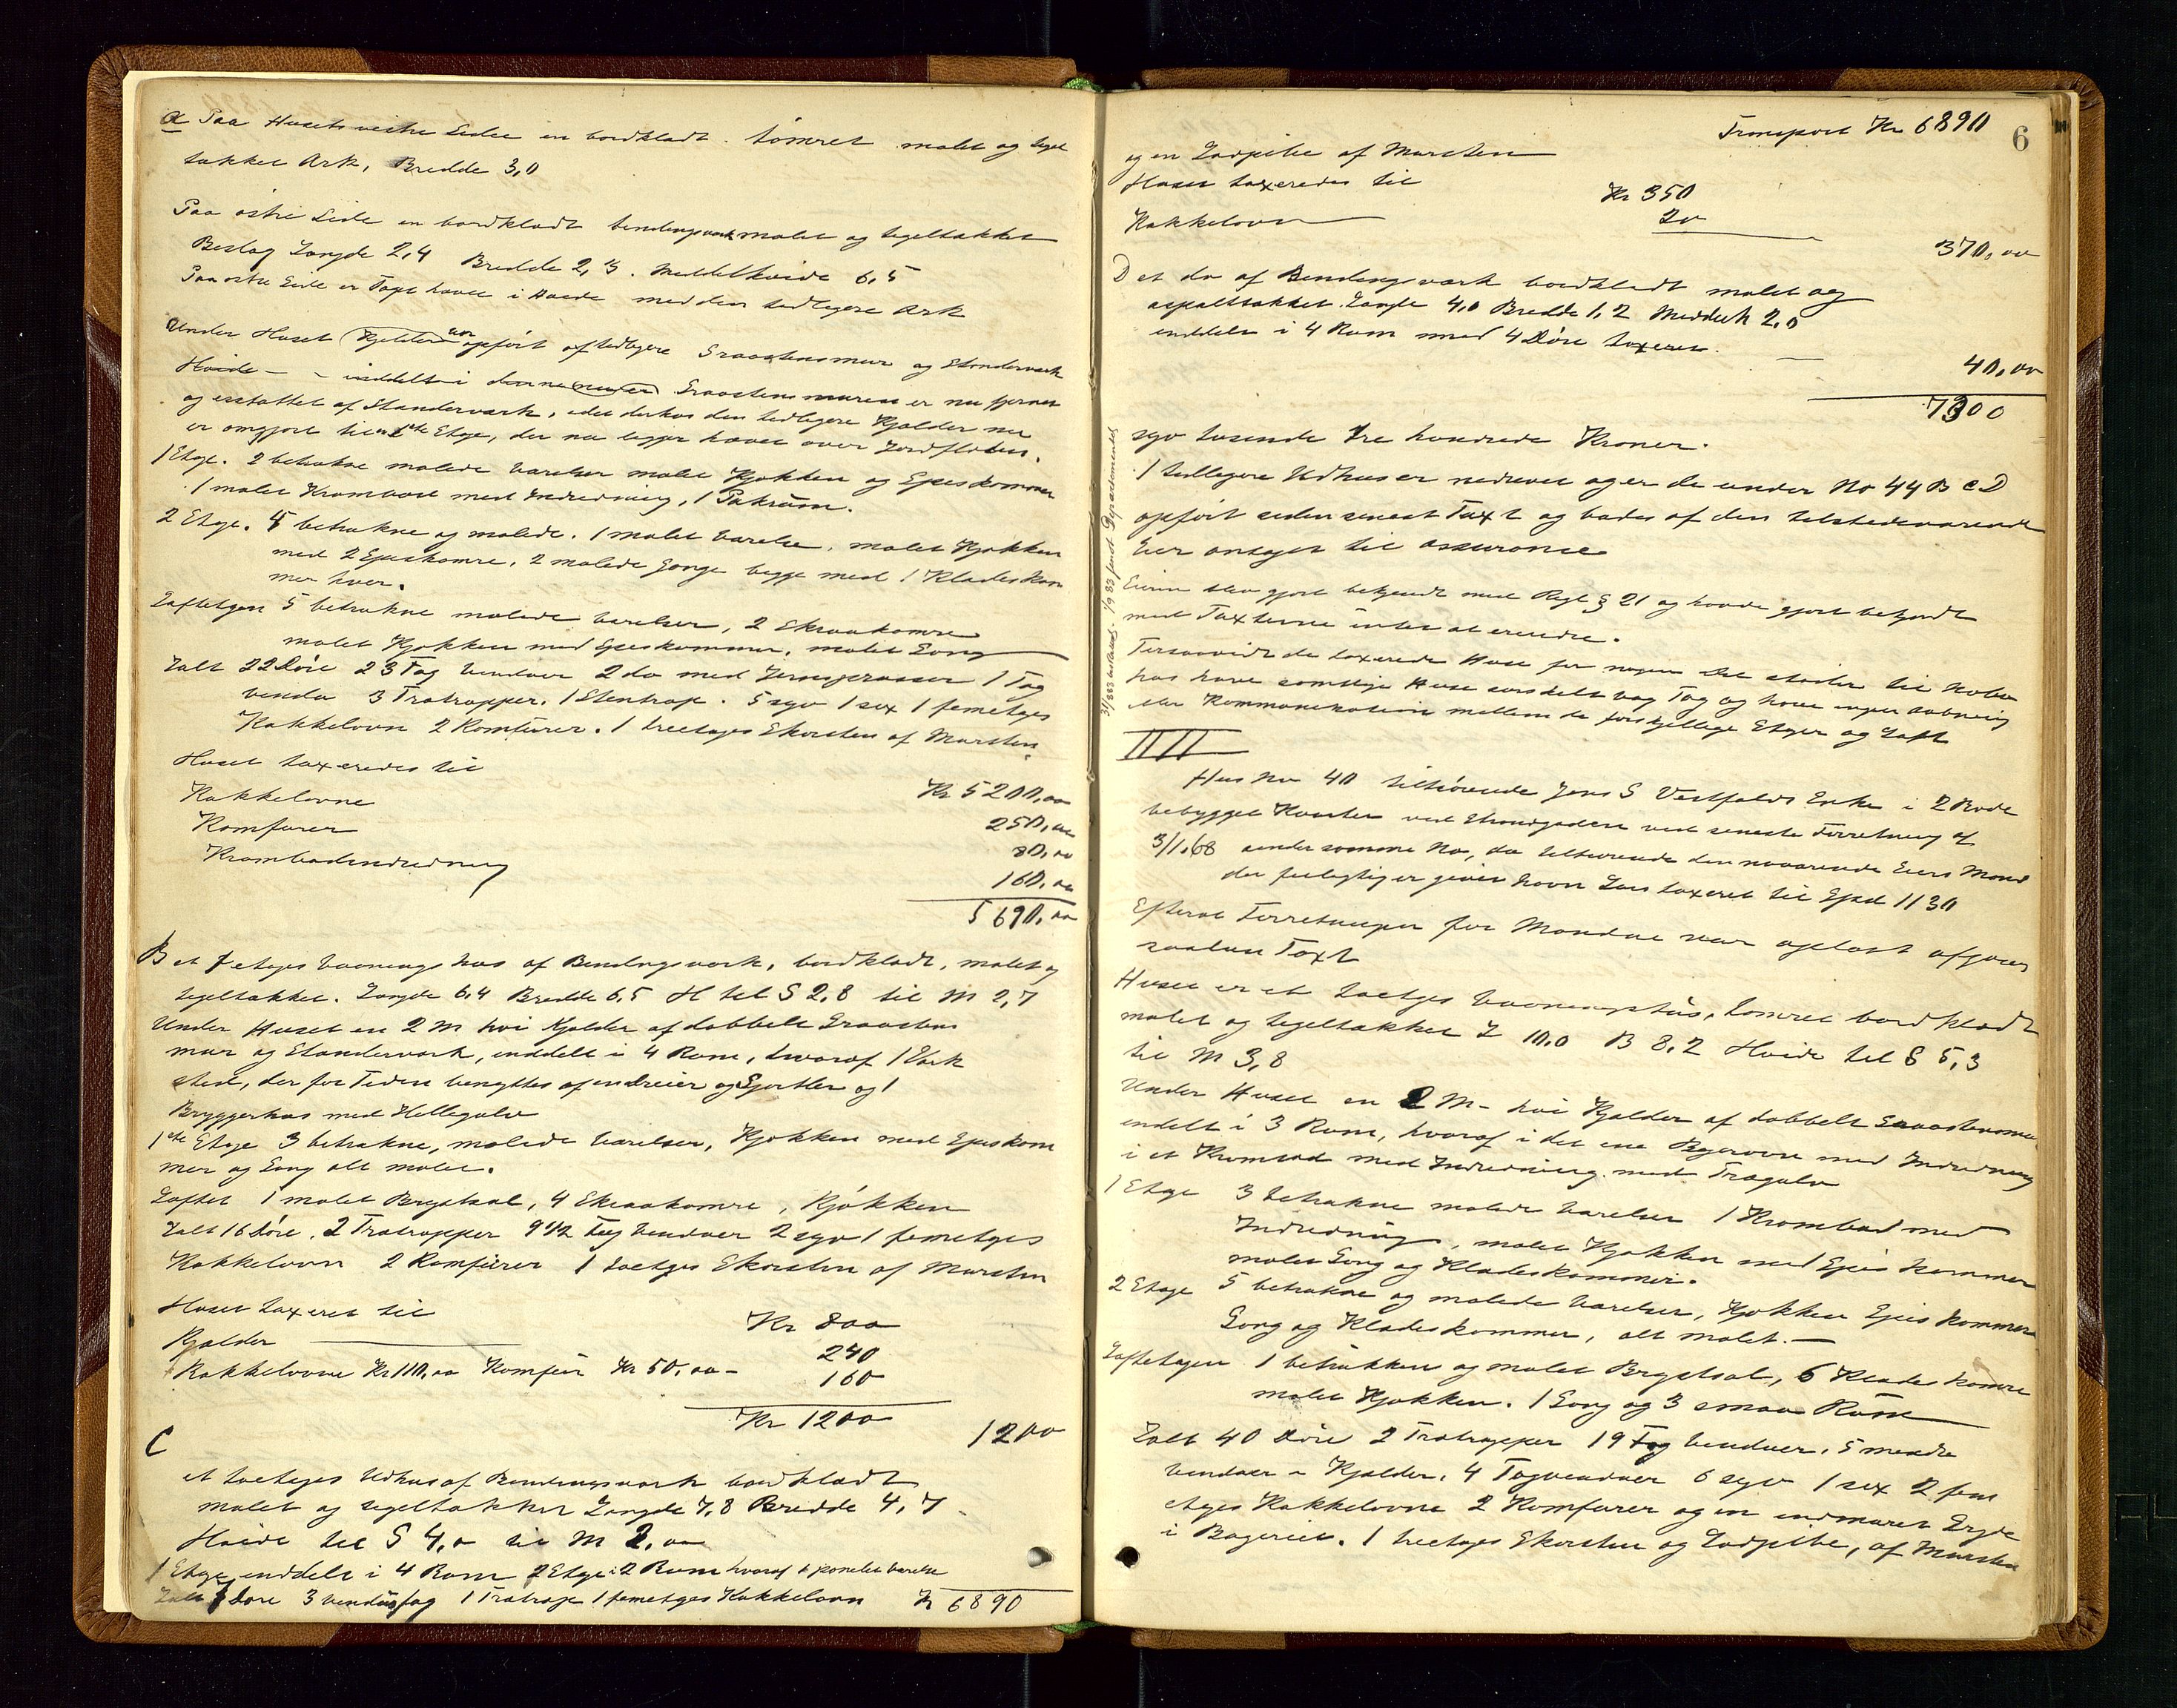 a Paa Husets vestre Side en bordklædt. tømret malet og tegel
takket Ark, Bredde 3,0
Paa østre Side en bordklædt bindingsværk malet og tegltakket
Beslag Længde 2,4 Bredde 2,3. Middelhøide 6,5
Paa østre Side er Taget hævet i Høide med den tidligere Ark
Under Huset Kjelder var opført af tidligere Graastensmur og Standerværk
Høide - - inddelt i Graastens muren er nu fjernet
og erstattet af Standerværk, idet derhos den tidligere Kjælder nu
er omgjort til 1ste Etage, der nu ligger hævet over Jordfladen.
1 Etage. 2 betrukne malede Værelser malet Kjøkken og Spiskammer
1 malet Krambod med Indredning, 1 Pakrum.
2 Etage. 4 betrukne og malede. 1 malet Værelse, malet Kjøkken
med 2 Spiskamre, 2 malede Gange begge med 1 Klædeskam
mer hver.
Loftetagen 5 betrukne malede Værelser, 2 Skraakamre
malet Kjøkken med Spiskammer, malet Gang
Ialt 22 Døre 23 Fag Vinduer 2 do med Jernsprosser 1 Tag
vindu 3 Trætrapper. 1 Stentrap. 5 syv 1 sex 1 femetages
Kakkelovn 2 Komfurer. 1 treetages Skorsten af Mursten.
Huset taxeredes til Kr 5200,00
Kakkelovne 250,00
Komfurer 80,00
Krambodindredning 160,00
5690,00
B et 1 etages Vaaningshus af Bindingsværk, bordklædt, malet og
tegeltakket. Længde 6,4 Bredde 6,5 H til S 2,8 til M 2,7
Under Huset en 2 M høi Kjælder af dobbelt Graastens
mur og Standerværk, inddelt i 4 Rum, hvoraf 1 Værk
sted, der for Tiden benyttes af en Dreier og Gjørtler og 1
Bryggerhus med Hellegulv
1ste Etage 3 betrukne, malede Værelser, Kjøkken med Spiskam
mer og Gang alt malet.
Loftet 1 malet Brystsal, 4 Skraakamre, Kjøkken
Ialt 16 Døre, 2 Trætrapper 9 1/2 Fag Vinduer 2 syv 1 femetages
Kakkelovn 2 Komfurer 1 toetages Skorsten af Mursten
Huset taxeret til Kr 800
Kjælder 240
Kakkelovne Kr 110,00 Komfur Kr 50,00 - 160
Kr 1200 1200
C
et toetages Udhus af Bindingsværk bordklædt
malet og tegeltakket Længde 7,8 Bredde 4,7
Høide til S 4,0 til M 2,00
1 Etage inddelt i 4 Rum 2 Etage i 2 Rum hvoraf et panelet Værelse
Ialt 7 Døre 3 Vinduesfag 1 Trætrap 1 femetages Kakkelovn Kr 6890
Transport Kr 6890 6
og en Ladpibe af Mursten
Huset taxeredes til Kr 350
Kakkelovn 20
370,00
D et do af Bindingsværk bordklædt malet og
asfalttakket. Længde 4,0 Bredde 1,2 Middelh 2,0
inddelt i 4 Rum med 4 Døre taxeret
40,00
7300
syv tusende tre hundrede Kroner.
1 tidligere Udhus er nedrevet og er de under No 44 B C D
opført siden senest Taxt og bades af den tilstedeværende
Eier antaget til assurance
Eieren blev gjort bekjendt med Regl § 21 og havde gjort bekjendt
med Taxterne intet at erindre.
Forsaavidt de taxerede Huse for nogen Del støder til Nabo
hus have samtlige Huse særskilt Væg Tag og have ingen Aabning
eller Kommunikation mellem de forskjellige Etager og Loft
III
Hus No 40 tilhørende Jens S Vestfalds Enke i 2 Rode
bebygget Kvarter ved Strandgaden ved seneste Forretning af
3/1.68 under samme No, da tilhørende den nuværende Eiers Mand
der feilagtig er givet Navn Lars taxeret til Spd 1130
Efterat Forretningen for Mændene var oplæst afgaves
saadan Taxt
Huset er et toetages Vaaningshus, tømret bordklædt
malet og tegeltakket L 10,0 B 8,2 Høide til S 5,3
til M 3,8
Under Huset en 2 M - høi Kjælder af dobbelt Graastensmur
inddelt i 3 Rum, hvoraf i det ene Bagerovn med Indredning
i et Krambod med Indredning med Trægulv
1 Etage 3 betrukne malede Værelser 1 Krambod med
Indredning, malet Kjøkken med Spiskammer
malet Gang og Klædeskammer.
2 Etage 5 betrukne og malede Værelser, Kjøkken Spiskammer
Gang og Klædeskammer, alt malet. -
Loftetagen 1 betrukken og malet Brystsal, 6 Klædeskamre
malet Kjøkken. 1 Gang og 3 smaa Rum
Ialt 40 Døre 2 Trætrapper 19 Fag Vinduer, 5 mindre
Vinduer i Kjælder, 4 Tagvinduer 6 syv 1 sex 2 fem
etages Kakkelovne 2 Komfurer og en indmuret Gryde
i Bageriet. 1 treetages Skorsten og Ladpibe, af Mursten